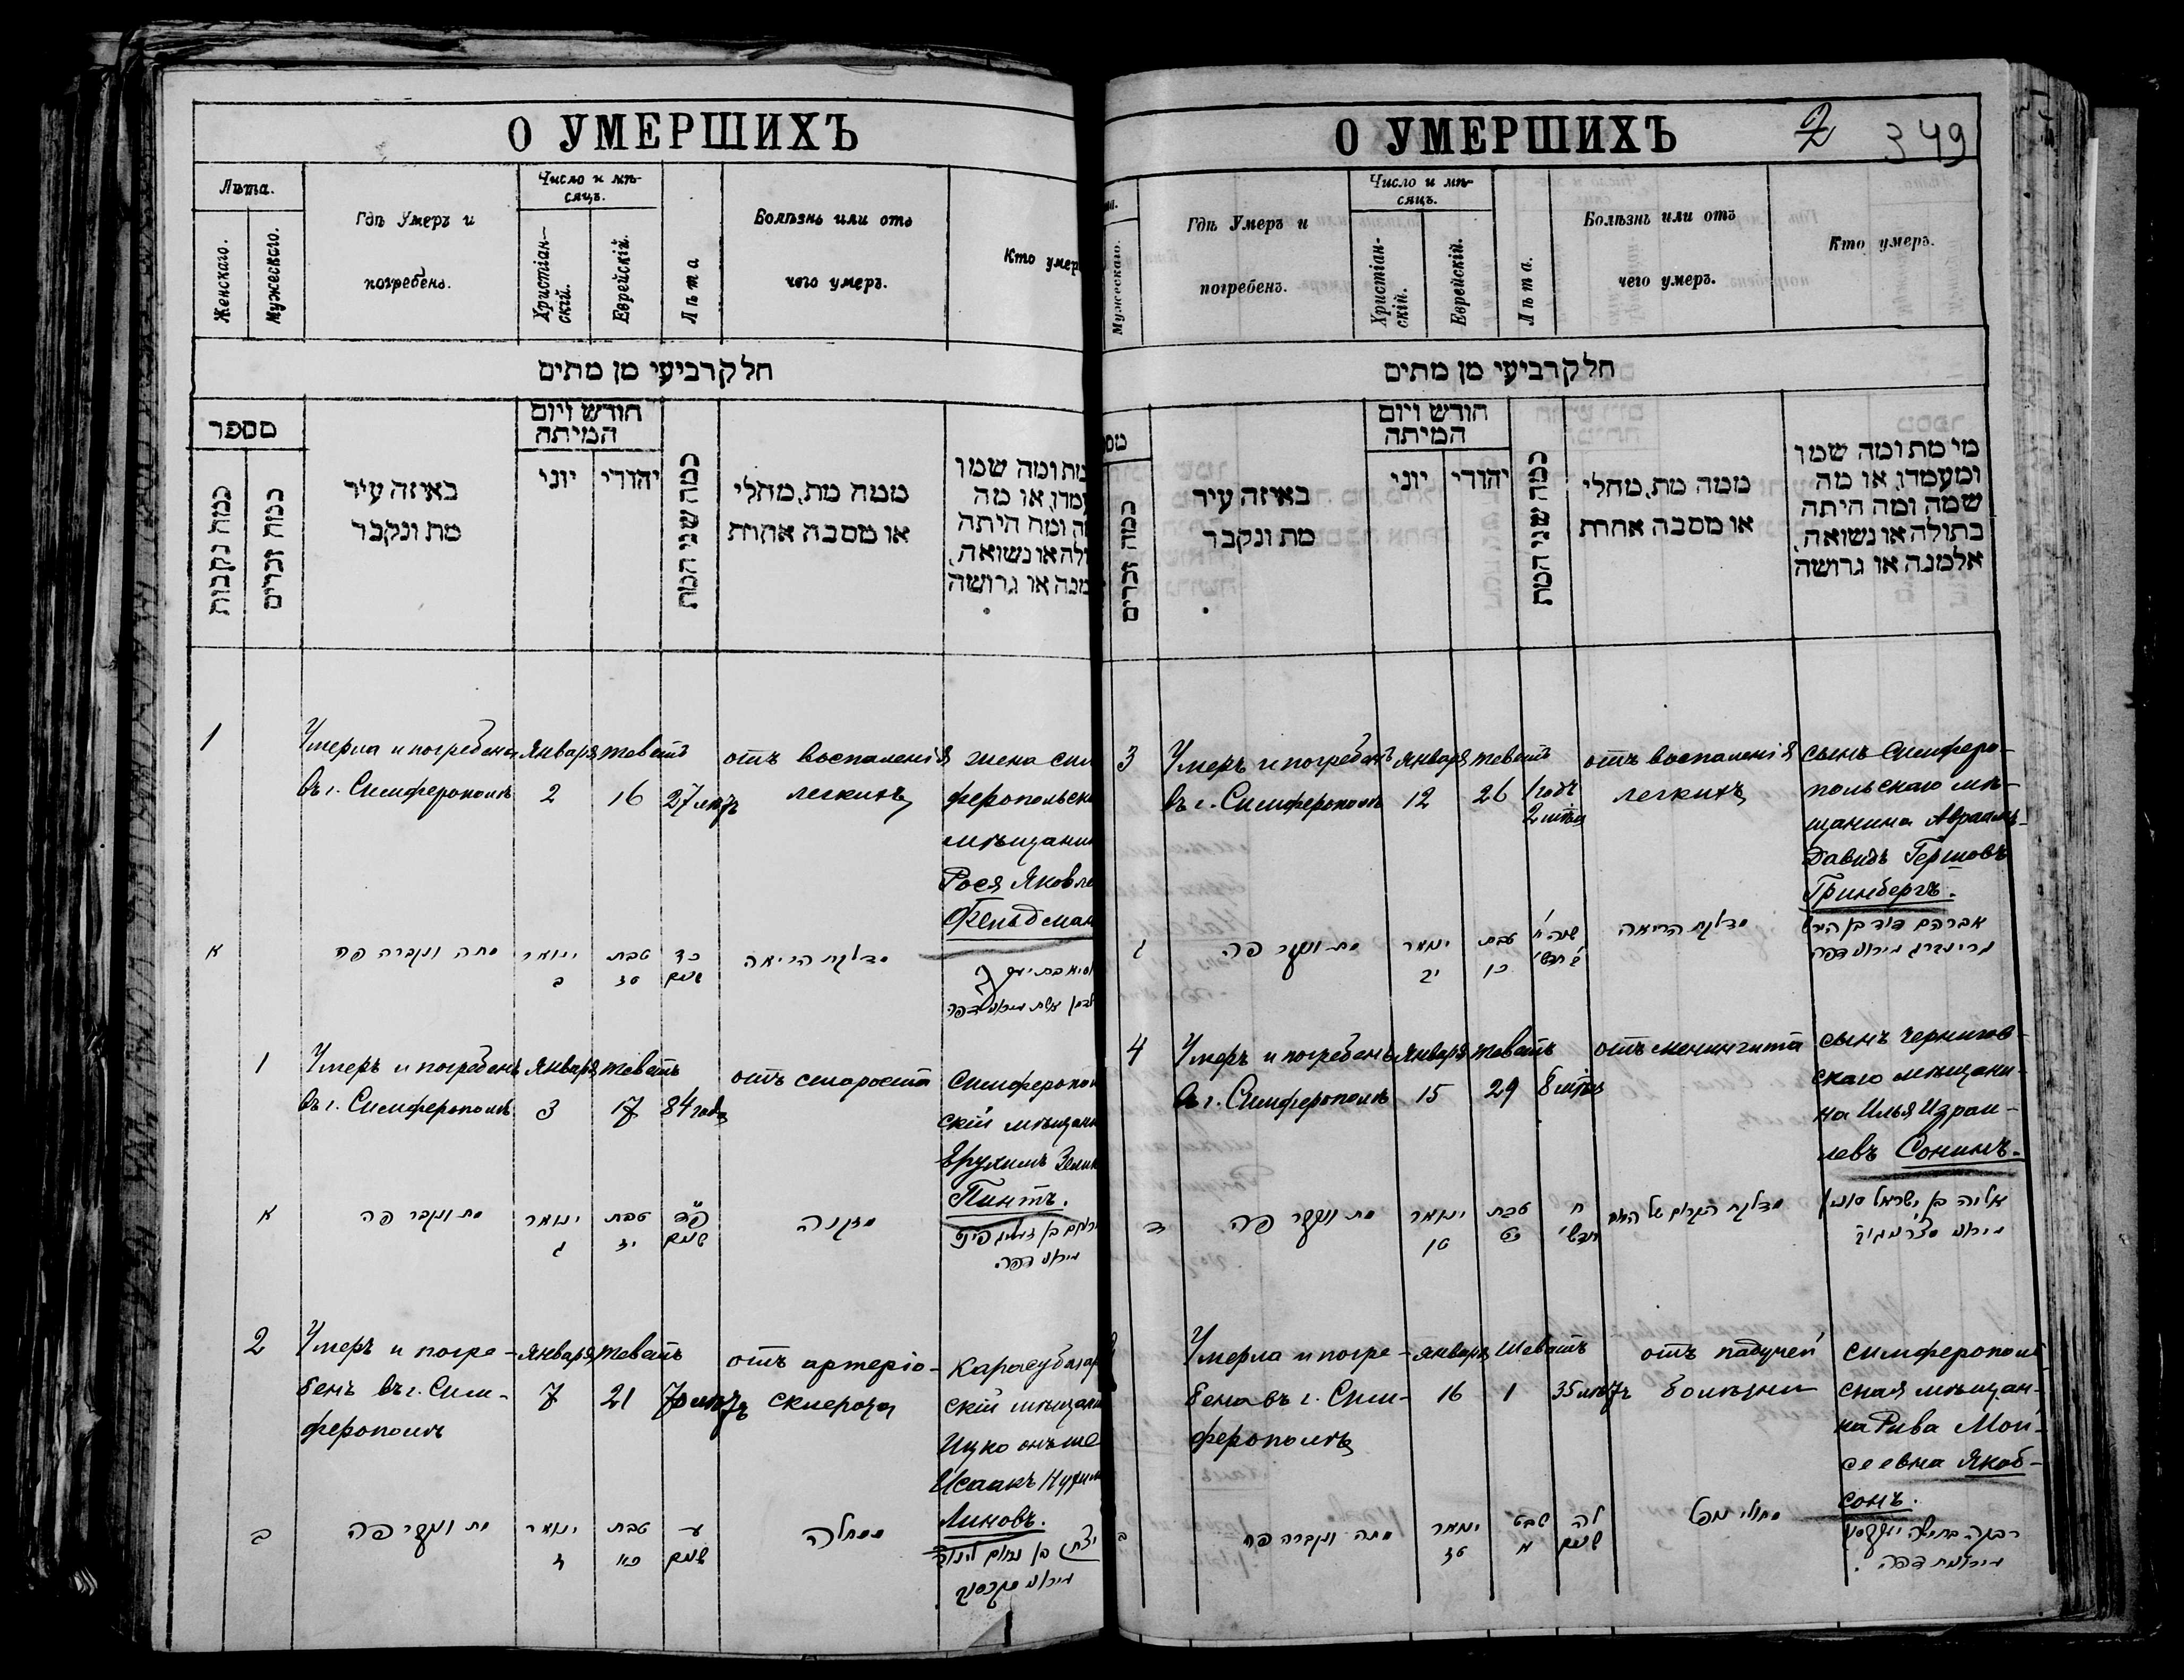 О УМЕРШИХЪ
Лѣта.
Женскаго.
Мужескаго.
Гдѣ Умеръ и
погребенъ.
Число и мѣ-
сяцъ.
Христіан-
скій.
Еврейскій.
Лѣта
Болѣзнь или отъ
чего умеръ.
Кто умер
חלק רביעי מן מתים
מספר
כמה נקבות
כמה זכרים
באיזה עיר
מת ונקבר
חודש ויום
המיתה
יוני
יהודי
כמה שני המת
ממה מת, מחלי
או מסבה אחרת
מת ומה שמו
עמדו, או מה
ה ומה היתה
ולה או נשואה,
מנה או גרושה
1
Умерла и погребена
въ г. Симферополѣ
Января
2
Теветъ
16
27 лѣтъ
отъ воспаленія
легкихъ
жена сим
феропольск
мѣщанин
Рося Яковле
Фельдман
א
מתה ונקברה פה
ינואר
ב
טבת
טז
כד
שנים
מדלקת הריאה
1
Умеръ и погребенъ
въ г. Симферополѣ
Января
3
Теветъ
17
84 года
отъ старости
Симферопол
скій мѣщани
Эрухимъ Зелик
Пинтъ.
א
מת ונקבר פה
ינואר
ג
טבת
יז
פד
שנים
מזקנה
2
Умеръ и погре-
бенъ въ г. Сим-
ферополѣ
Января
7
Теветъ
21
70 лѣтъ
отъ артеріо-
склероза
Карасубазар
скій мѣщани
Ицко онъ же
Исаакъ Нухим
Линовъ.
ב
מת ונקבר פה
ינואר
ז
טבת
כא
ע
שנים
ממחלה
О УМЕРШИХЪ
2
349
Мужескаго.
Гдѣ Умеръ и
погребенъ.
Число и мѣ-
сяцъ.
Христіан-
скій.
Еврейскій.
Лѣта.
Болѣзнь или отъ
чего умеръ.
Кто умеръ.
חלק רביעי מן מתים
מס
כמה זכרים
באיזה עיר
מת ונקבר
חודש ויום
המיתה
יוני
יהודי
כמה שני המת
ממה מת, מחלי
או מסבה אחרת
מי מת ומה שמו
ומעמדו, או מה
שמה ומה היתה
בתולה או נשואה,
אלמנה או גרושה
3
Умеръ и погребенъ
въ г. Симферополѣ
Января
12
Теветъ
26
1 годъ
2 мѣся
отъ воспаленія
легкихъ
сынъ Симферо-
польскаго мѣ-
щанина Авраамъ-
Давидъ Гершовъ
Гринбергъ.
ג
מת ונקבר פה
ינואר
יב
טבת
כו
מדלקת הריאה
אברהם דוד בן הירש
4
Умеръ и погребенъ
въ г. Симферополѣ
Января
15
Теветъ
29
8 мѣсяц
отъ менингита
сынъ Чернигов-
скаго мѣщани-
на Илья Израи-
левъ Сонинъ.
ד
מת ונקבר פה
ינואר
טו
טבת
כט
ח
חדשי
אליה בן ישראל סונין
Умерла и погре-
бена въ г. Сим-
ферополѣ
Января
16
Шеватъ
1
35 лѣтъ
отъ падучей
болѣзни
Симферополь
ская мѣщан-
ка Рива Мои-
сеевна Якоб-
сонъ.
ב
מתה ונקברה פה
ינואר
טז
שבט
א
לה
שנים
מחולי נופל